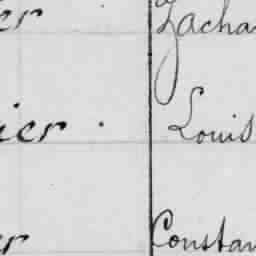 er . Zacha
ier . Louis
er Constan